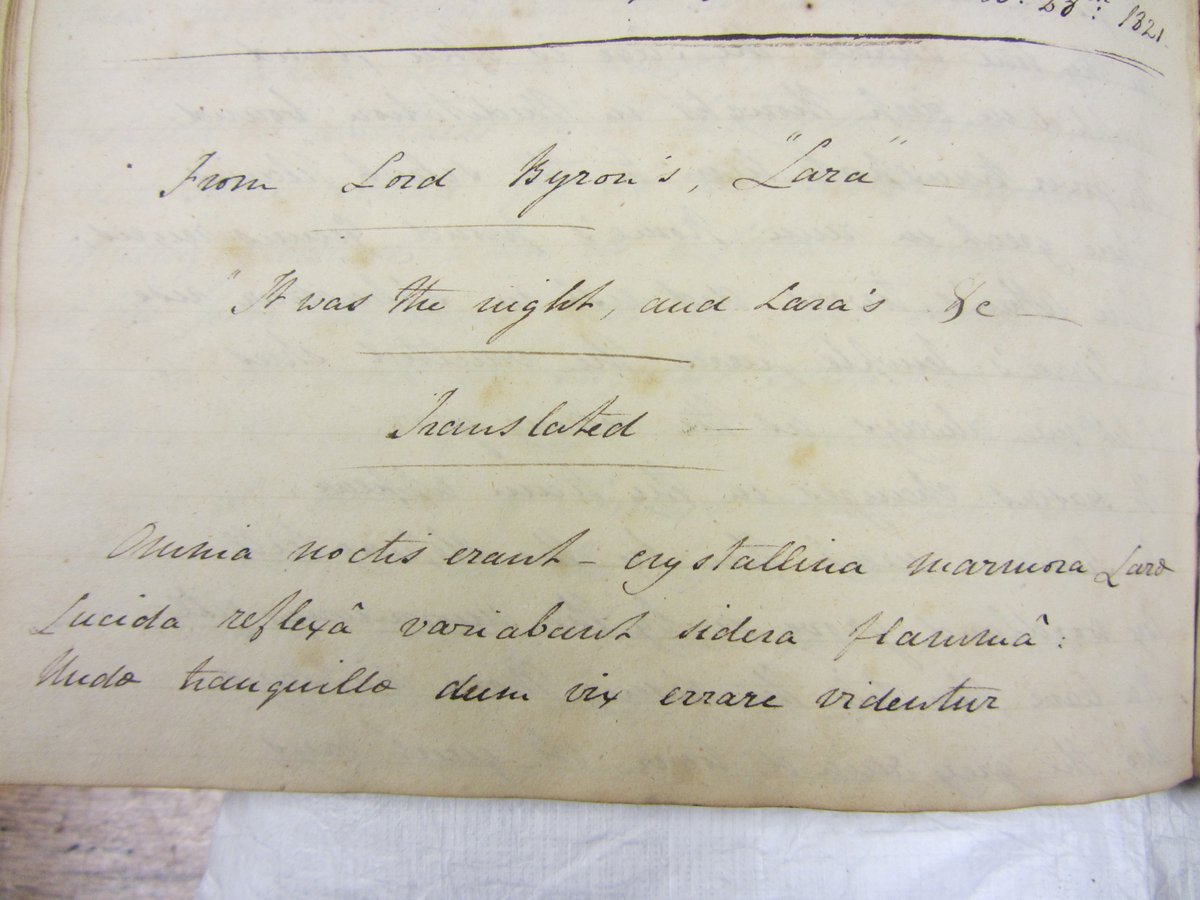 23. 1821.
From Lord Byron's, "Lara" —
"It was the night, and Lara's &c —
Translated —
Omnia noctis erant – crystallina marmora Laræ
Lucida reflexâ variabant sidera flammâ:
Undæ tranquillæ dum vix errare videntur